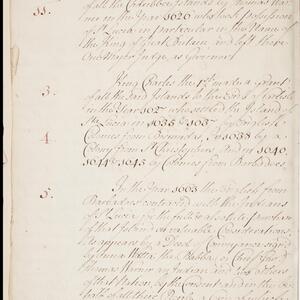 of all the Caribbee Islands by Thomas War-
ner in the Year 1626 who took possession
of St Lucia in particular in the Name of
the King of Great Britain and left there
One Major Judge, as Governor
3. King Charles the 1st made a grant
of all the said Islands to the Lord Carlisle
in the Year 1627 who settled the Island of
St Lucia in 1635 & 1637 by English
4. Colonies from Bermudas, in 1638 by a
Colony from St Christophers and in 1640,
1644 & 1645 by Colonies from Barbadoes.
5. In the Year 1663 the English from
Barbadoes contracted with the Indians
of St Lucia for the full & absolute purchase
of that Island on valuable Considerations,
as appears by a Deed of Conveyance signed
by
Thomas Warner an Indian and two others
of that Nation, by the Consent and in the